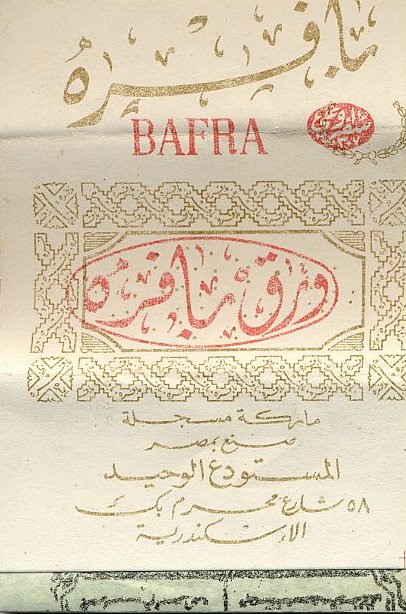 بافره
BAFRA
ورق بافره
ماركة مسجلة
صنع بمصر
المستودع الوحيد
٥٨ شارع محرم بك
الاسكندرية